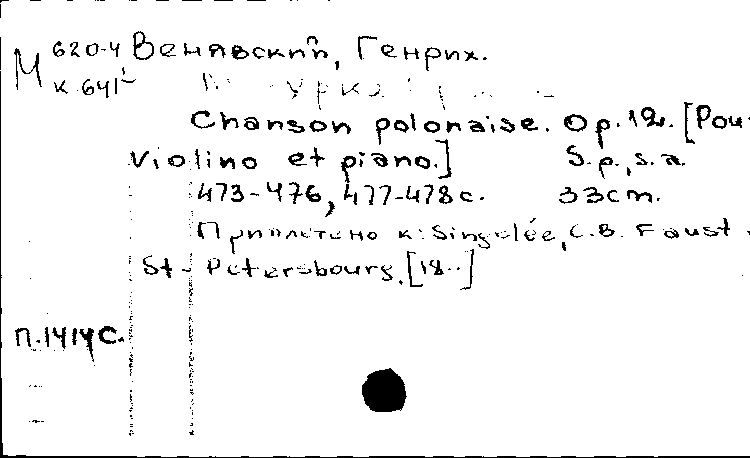 М 620-4 Венявский, Генрих.
к 641²
Chanson polonaise. Op. 12. [Pour
violino et piano.] S.p., s.a.
473-476, 477-478 с. 33 cm.
Приплетено к: Singelée, C.B. Faust.
St-Petersbourg, [18..]
П.1414С.